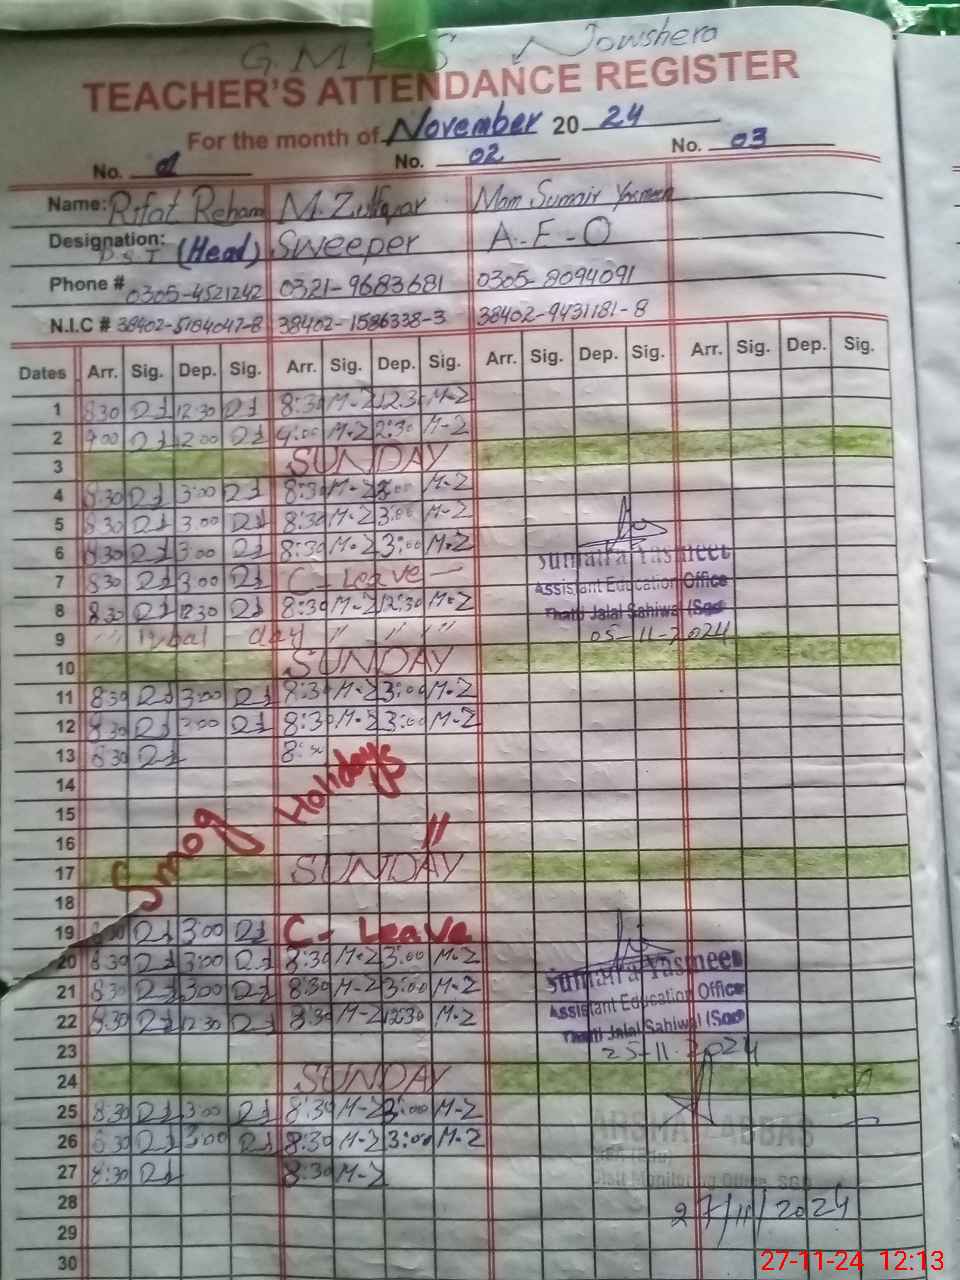 G.M.P.S Nowshera
TEACHER'S ATTENDANCE REGISTER
For the month of November 20 24
No. 01 No. 02 No. 03
Name: Rifat Reham M. Zulfiqar Mam Sumair Yasmeen
Designation: P.S.T (Head) Sweeper A-E-O
Phone # 0305-4521242 0321-9683681 0305-8094091
N.I.C # 38402-5184047-8 38402-1586338-3 38402-9431181-8
Dates Arr. Sig. Dep. Sig. Arr. Sig. Dep. Sig. Arr. Sig. Dep. Sig. Arr. Sig. Dep. Sig.
1 8:30 12:30 8:30 M-Z 12:30 M-Z
2 9:00 12:00 M-Z 2:30 M-Z
3 SUNDAY
4 8:30 3:00 8:30 M-Z 3:00 M-Z
5 8:30 3:00 8:30 M-Z 3:00 M-Z
6 8:30 3:00 8:30 M-Z 3:00 M-Z
7 8:30 3:00 C-Leave
8 8:30 12:30 8:30 M-Z 12:30 M-Z
9 Iqbal day " " "
10 SUNDAY
11 8:30 3:00 8:30 M-Z 3:00 M-Z
12 8:30 3:00 8:30 M-Z 3:00 M-Z
13 8:30 8:30
14
15
16
Smog Holidays "
17 SUNDAY
18
19 8:30 3:00 C-Leave
20 8:30 3:00 8:30 M-Z 3:00 M-Z
21 8:30 3:00 8:30 M-Z 3:00 M-Z
22 8:30 12:30 8:30 M-Z 12:30 M-Z
23
24 SUNDAY
25 8:30 3:00 8:30 M-Z 3:00 M-Z
26 8:30 3:00 8:30 M-Z 3:00 M-Z
27 8:30 8:30 M-Z
28
29
30
Sumaira Yasmeen
Assistant Education Office
Thatti Jalal Sahiwal (Sgd
05-11-2024
Sumaira Yasmeen
Assistant Education Office
Thatti Jalal Sahiwal (Sgd
25-11-2024
ARSHAD ABBAS
Monitoring
27/11/2024
27-11-24 12:13